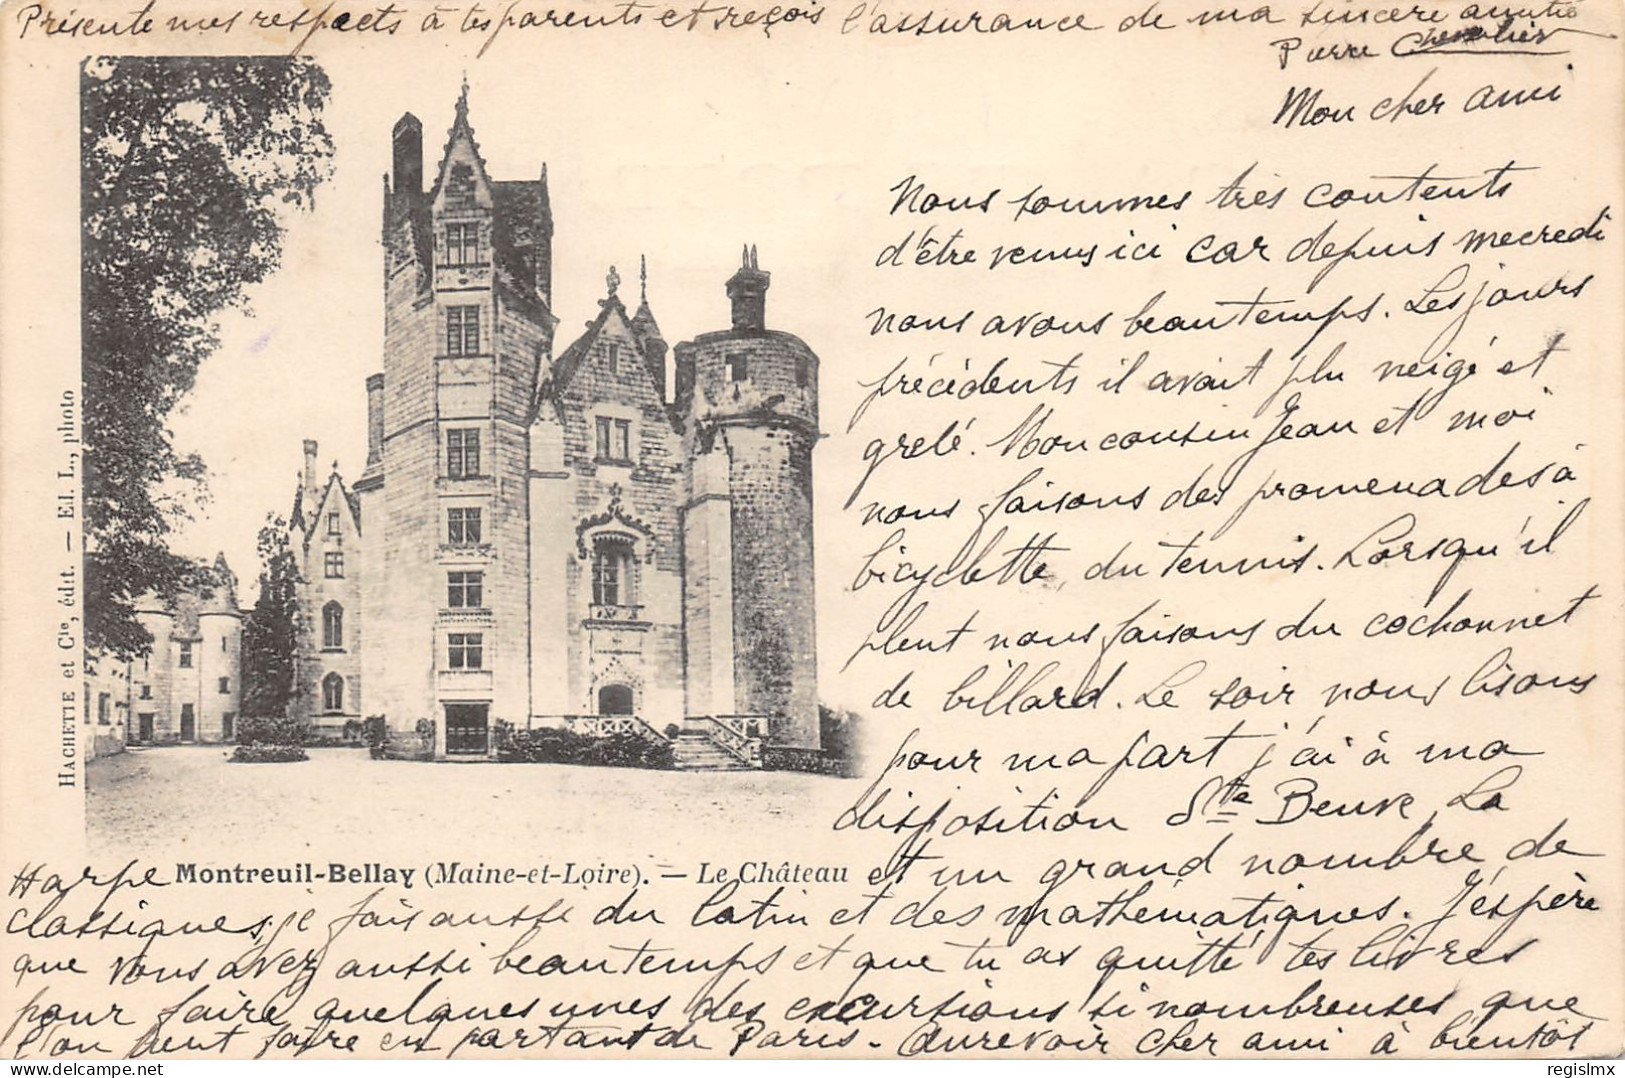 Présente mes respects à tes parents et reçois l'assurance de ma sincère amitié
Pierre Chevalier
Mon cher ami
Nous sommes très contents
d'être venus ici car depuis mecredi
nous avons beau temps. Les jours
précédents il avait plu neigé et
grelé. Mon cousin Jean et moi
nous faisons des promenades à
bicyclette, du tennis. Lorsqu'il
pleut nous faisons du cochonnet
de billard. Le soir nous lisons
pour ma part j'ai à ma
disposition Ste Beuve, La
Harpe et un grand nombre de
classiques, je fais aussi du latin et des mathématiques. J'éspère
que vous avez aussi beau temps et que tu as quitté tes livres
pour faire quelques unes des excursions si nombreuses que
l'on peut faire en partant de Paris. Aurevoir cher ami à bientôt
Montreuil-Bellay (Maine-et-Loire). — Le Château
HACHETTE et Cie, édit. — El. L., photo
regislmx